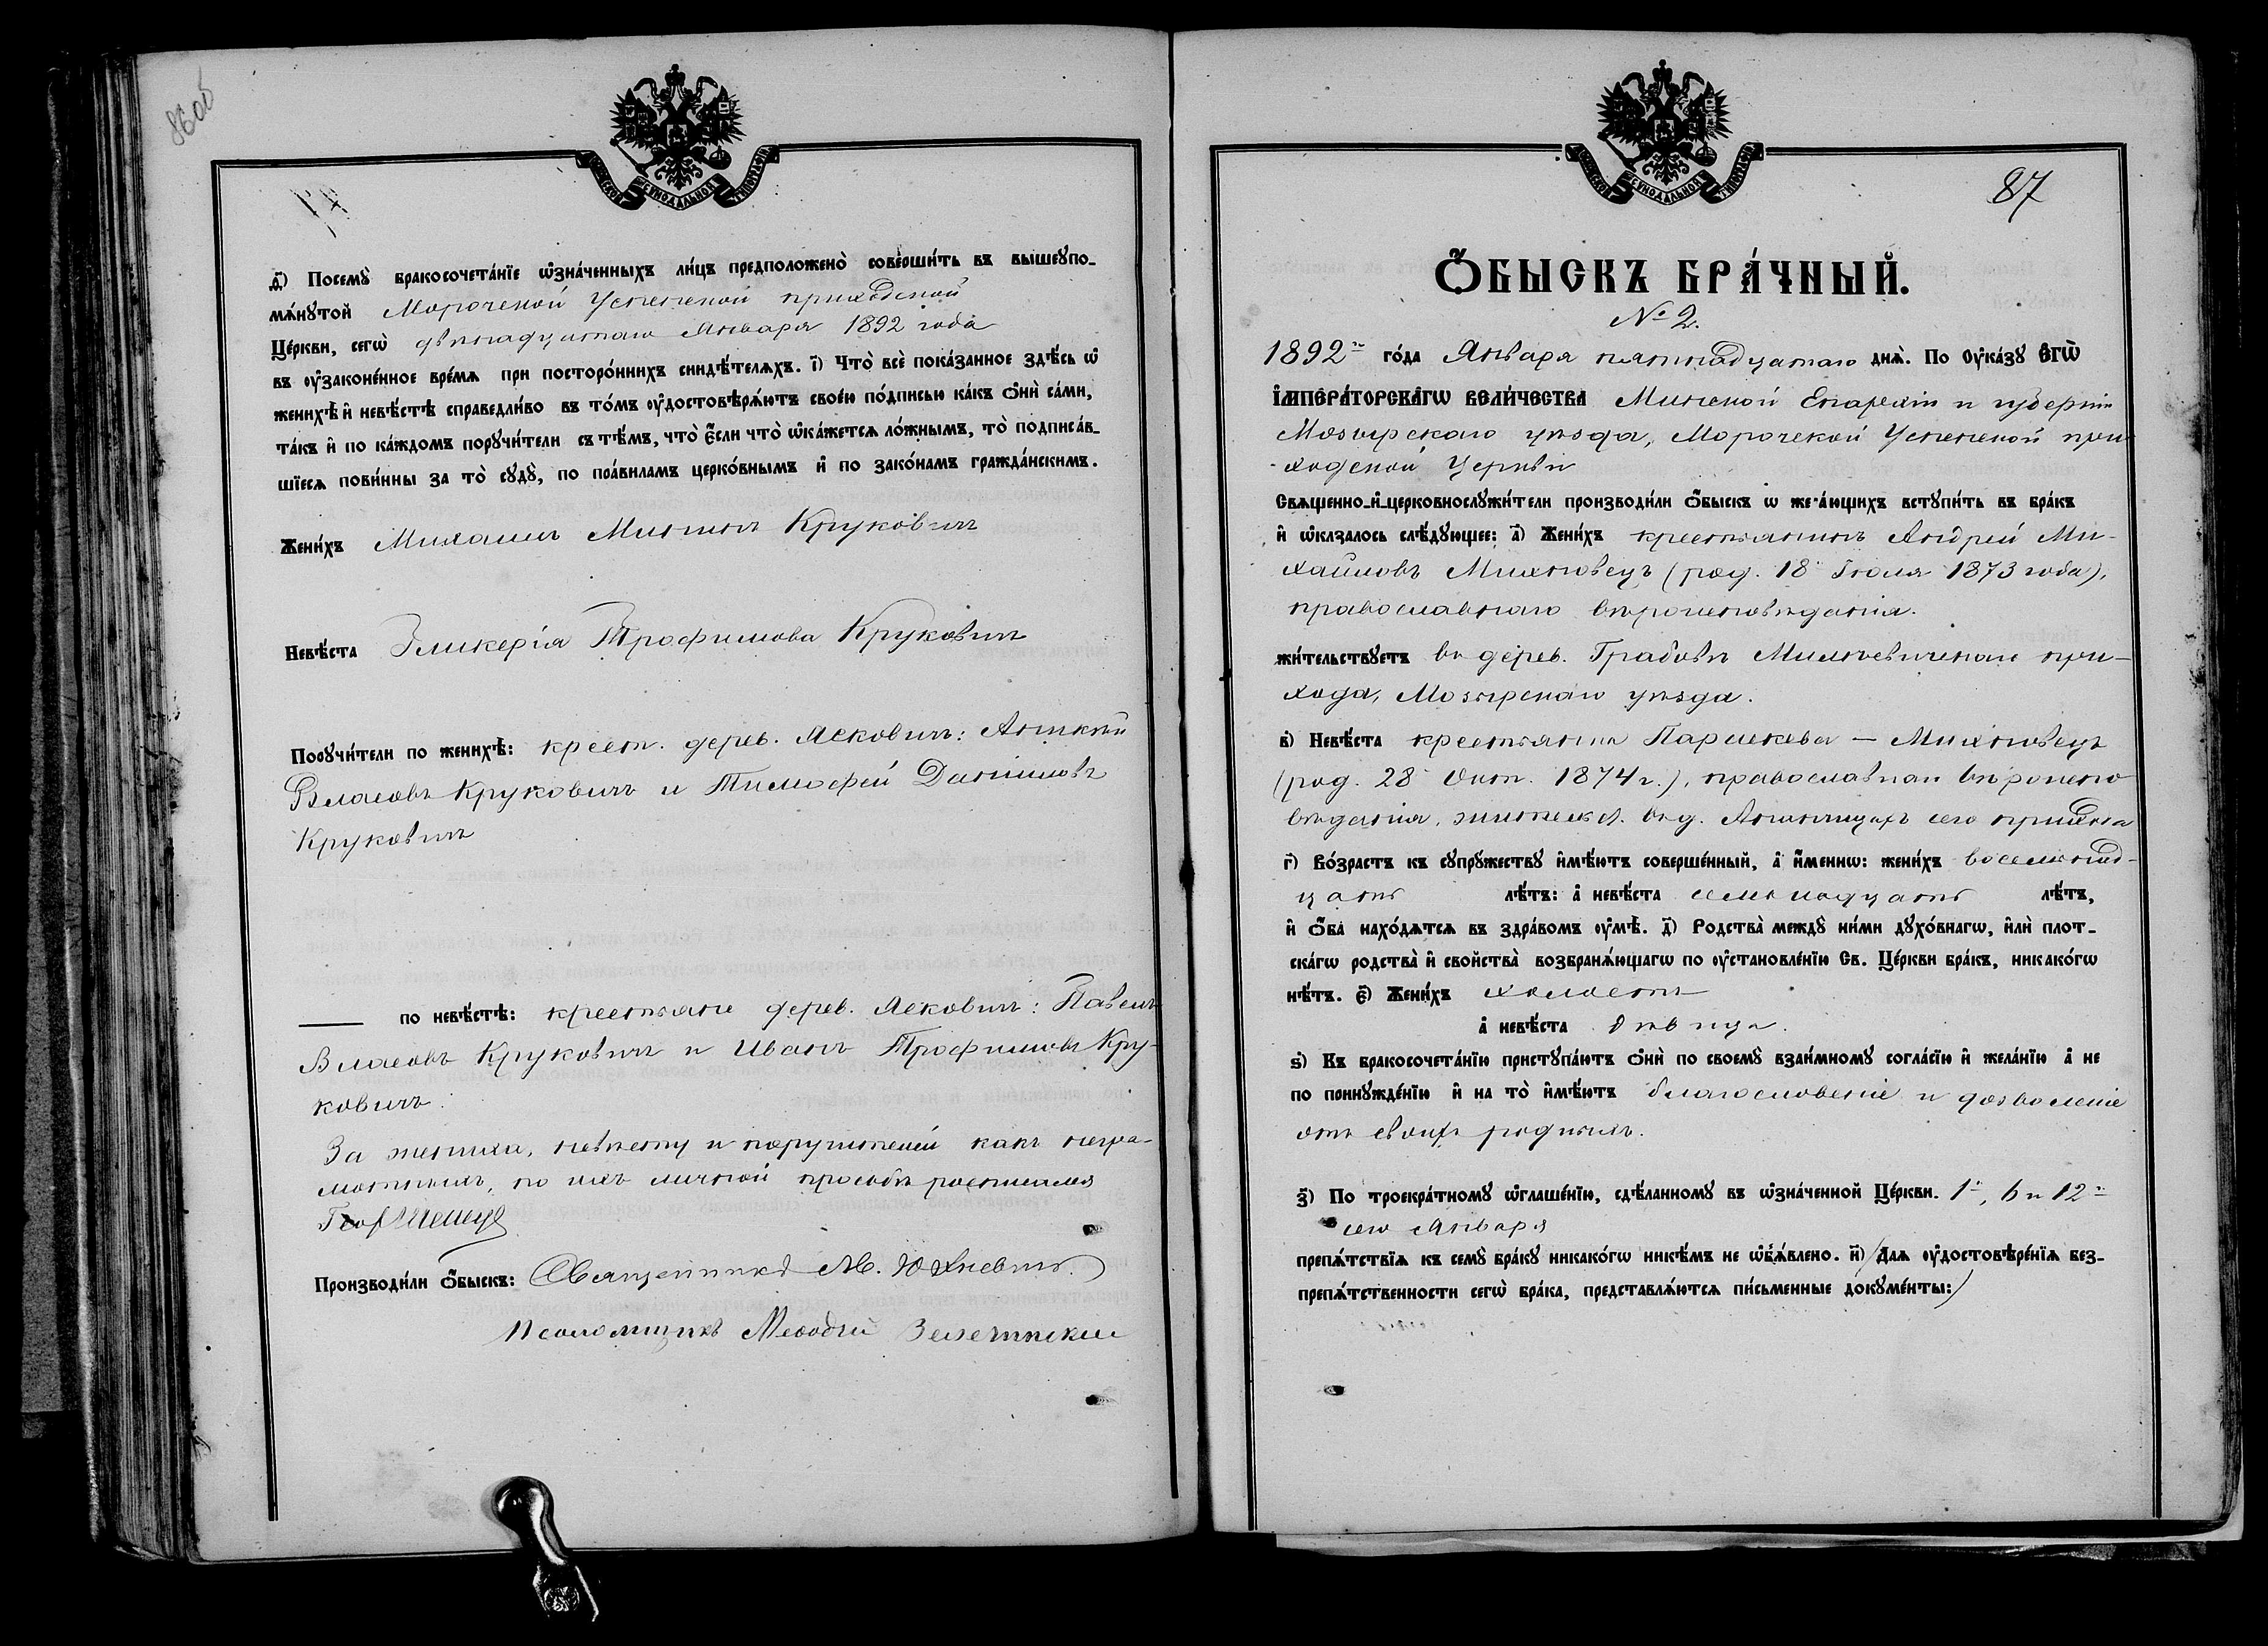 86об
МОСКОВСКОЙ СУНОДАЛЬНОЙ ТУПОГРАФІИ
д҃) Посемꙋ̀ бракосочета́нїе ѡ҆зна́ченныхъ ли́цъ предположено̀ соверши́ть въ вышеꙋпо-
мѧ́нꙋтой Морочской Успенской приходской
Це́ркви, сегѡ̀ двѣнадцатаго Января 1892 года
въ ᲂу҆законе́нное вре́мѧ при посторо́ннихъ свидѣ́телѧхъ. і҃) Что̀ всѐ пока́занное здѣ́сь ѡ҆
женихѣ̀ и҆ невѣ́стѣ справедли́во въ то́мъ ᲂу҆достовѣрѧ́ютъ свое́ю по́дписью ка́къ ѻ҆нѝ са́ми,
та́къ и҆ по ка́ждомъ порꙋчи́тели съ тѣ́мъ, что̀ є҆́сли что̀ ѡ҆ка́жетсѧ ло́жнымъ, то̀ подписа́в-
шїесѧ пови́нны за то̀ сꙋдꙋ̀, по пра́виламъ церко́внымъ и҆ по зако́намъ гражда́нскимъ.
Жени́хъ Михаилъ Мининъ Круковичъ
Невѣ́ста Гликерія Трофимова Круковичъ
Порꙋчи́тели по женихѣ̀: крест. дерев. Ясковичъ:
Власовъ Круковичъ и Тимофей Даниловъ
Круковичъ
по невѣ́стѣ: крестьяне дерев. Ясковичъ: Павелъ
Власовъ Круковичъ и Иванъ Трофимовъ Кру-
ковичъ.
За жениха, невѣсту и поручителей какъ негра-
мотныхъ, по ихъ личной просьбѣ росписался
Производи́ли ѻ҆́быскъ: Священникъ М. Юхневичъ.
Псаломщикъ Меѳодій
МОСКОВСКОЙ СУНОДАЛЬНОЙ ТУПОГРАФІИ
87
Ѻ҆БЫСКЪ БРА́ЧНЫЙ.
№ 2.
1892го го́да Января пятнадцатаго днѧ̀. По ᲂу҆ка́зꙋ Є҆ГѠ̀
І҆МПЕРА́ТОРСКАГѠ ВЕЛИ́ЧЕСТВА Минской Епархіи и губерніи
Мозырскаго уѣзда, Морочской Успенской при-
ходской Церкви
Свѧщенно-и҆-церковнослꙋжи́тели производи́ли ѻ҆́быскъ ѡ же·а́ющихъ встꙋпи́ть въ бра́къ
и҆ ѡ҆казалось слѣ́дꙋющее: а҃) Жени́хъ крестьянинъ Андрей Ми-
хайловъ Михновецъ (род. 18 Іюля 1873 года),
православнаго вѣроисповѣданія.
жи́тельствꙋетъ въ дерев. Грабовѣ Милевичскаго при-
хода, Мозырскаго уѣзда.
в҃) Невѣ́ста крестьянка Параскева — Михновецъ
(род. 28 Окт. 1874 г.), православнаго вѣроиспо-
вѣданія, жительст. въ д. сего прихода
г҃) Во́зрастъ къ сꙋпрꙋ́жествꙋ и҆мѣ́ютъ соверше́нный, а҆ и҆́меннѡ: жени́хъ восемнад-
цать лѣ́тъ: а҆ невѣ́ста семнадцать лѣ́тъ,
и҆ ѻ҆́ба нахо́дѧтсѧ въ здра́вомъ ᲂу҆мѣ̀. д҃) Родства̀ междꙋ̀ ни́ми дꙋхо́внагѡ, и҆лѝ плот-
ска́гѡ родства̀ и҆ сво́йства̀ возбранѧ́ющагѡ по ᲂу҆становле́нїю Св. Це́ркви бра́къ, никако́гѡ
нѣ́тъ. є҃) Жени́хъ холостъ
а҆ невѣ́ста дѣвица.
ѕ҃) Къ бракосочета́нїю пристꙋпа́ютъ ѻ҆нѝ по своемꙋ̀ взаи́мномꙋ согла́сїю и҆ жела́нїю а҆ не
по принꙋжде́нїю и҆ на то̀ и҆мѣ́ютъ благословеніе и дозволеніе
отъ своихъ родныхъ.
з҃) По троекра́тномꙋ ѡ҆глаше́нїю, сдѣ́ланномꙋ въ ѡ҆зна́ченной Це́ркви. 1го, 6 и 12го
сего Января
препѧ́тствїѧ къ семꙋ̀ бра́кꙋ никако́гѡ никѣ́мъ не ѡ҆б̾ѧ́влено. и҃) Длѧ ᲂу҆достовѣре́нїѧ без-
препѧ́тственности сегѡ̀ бра́ка, представлѧ́ютсѧ пи́сьменные докꙋме́нты: